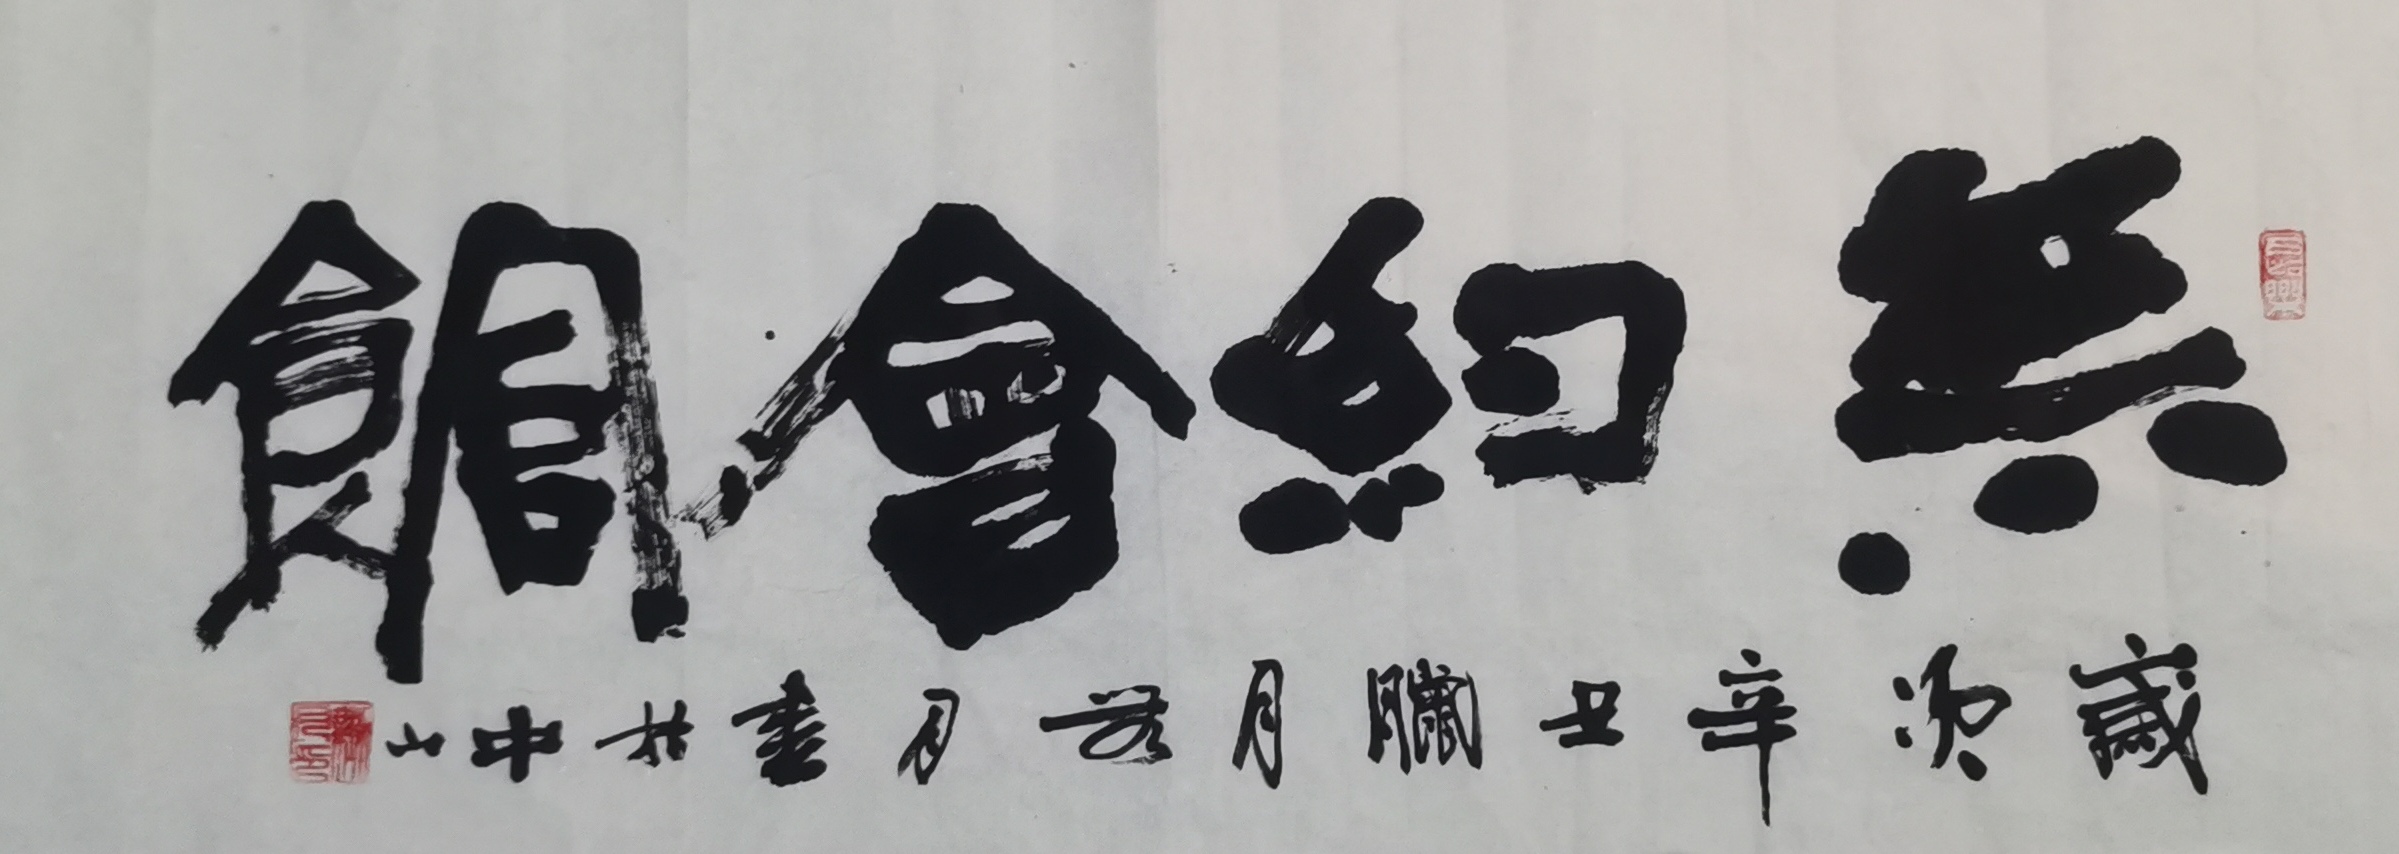 無約會館
歲次辛丑臘月月書於中山